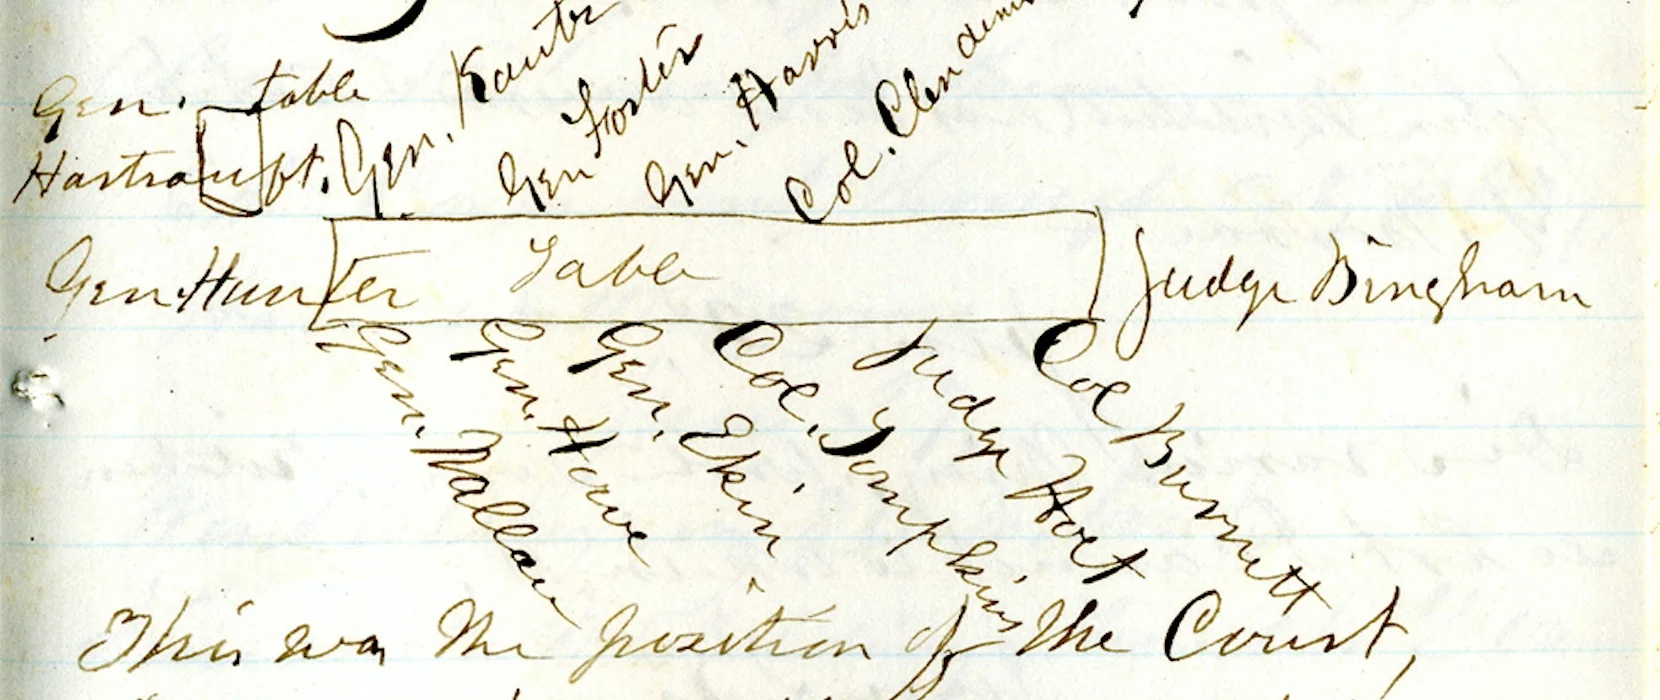 Gen. table
Hartrauft.
Gen. Kautz
Gen Foster
Gen. Harris
Col. Clendenin
Gen. Hunter
Table
Judge Bingham
Gen. Wallace
Gen. Howe
Gen. Ekin
Col. Tompkins
Judge Holt
Col Burnett
This was the position of the Court,